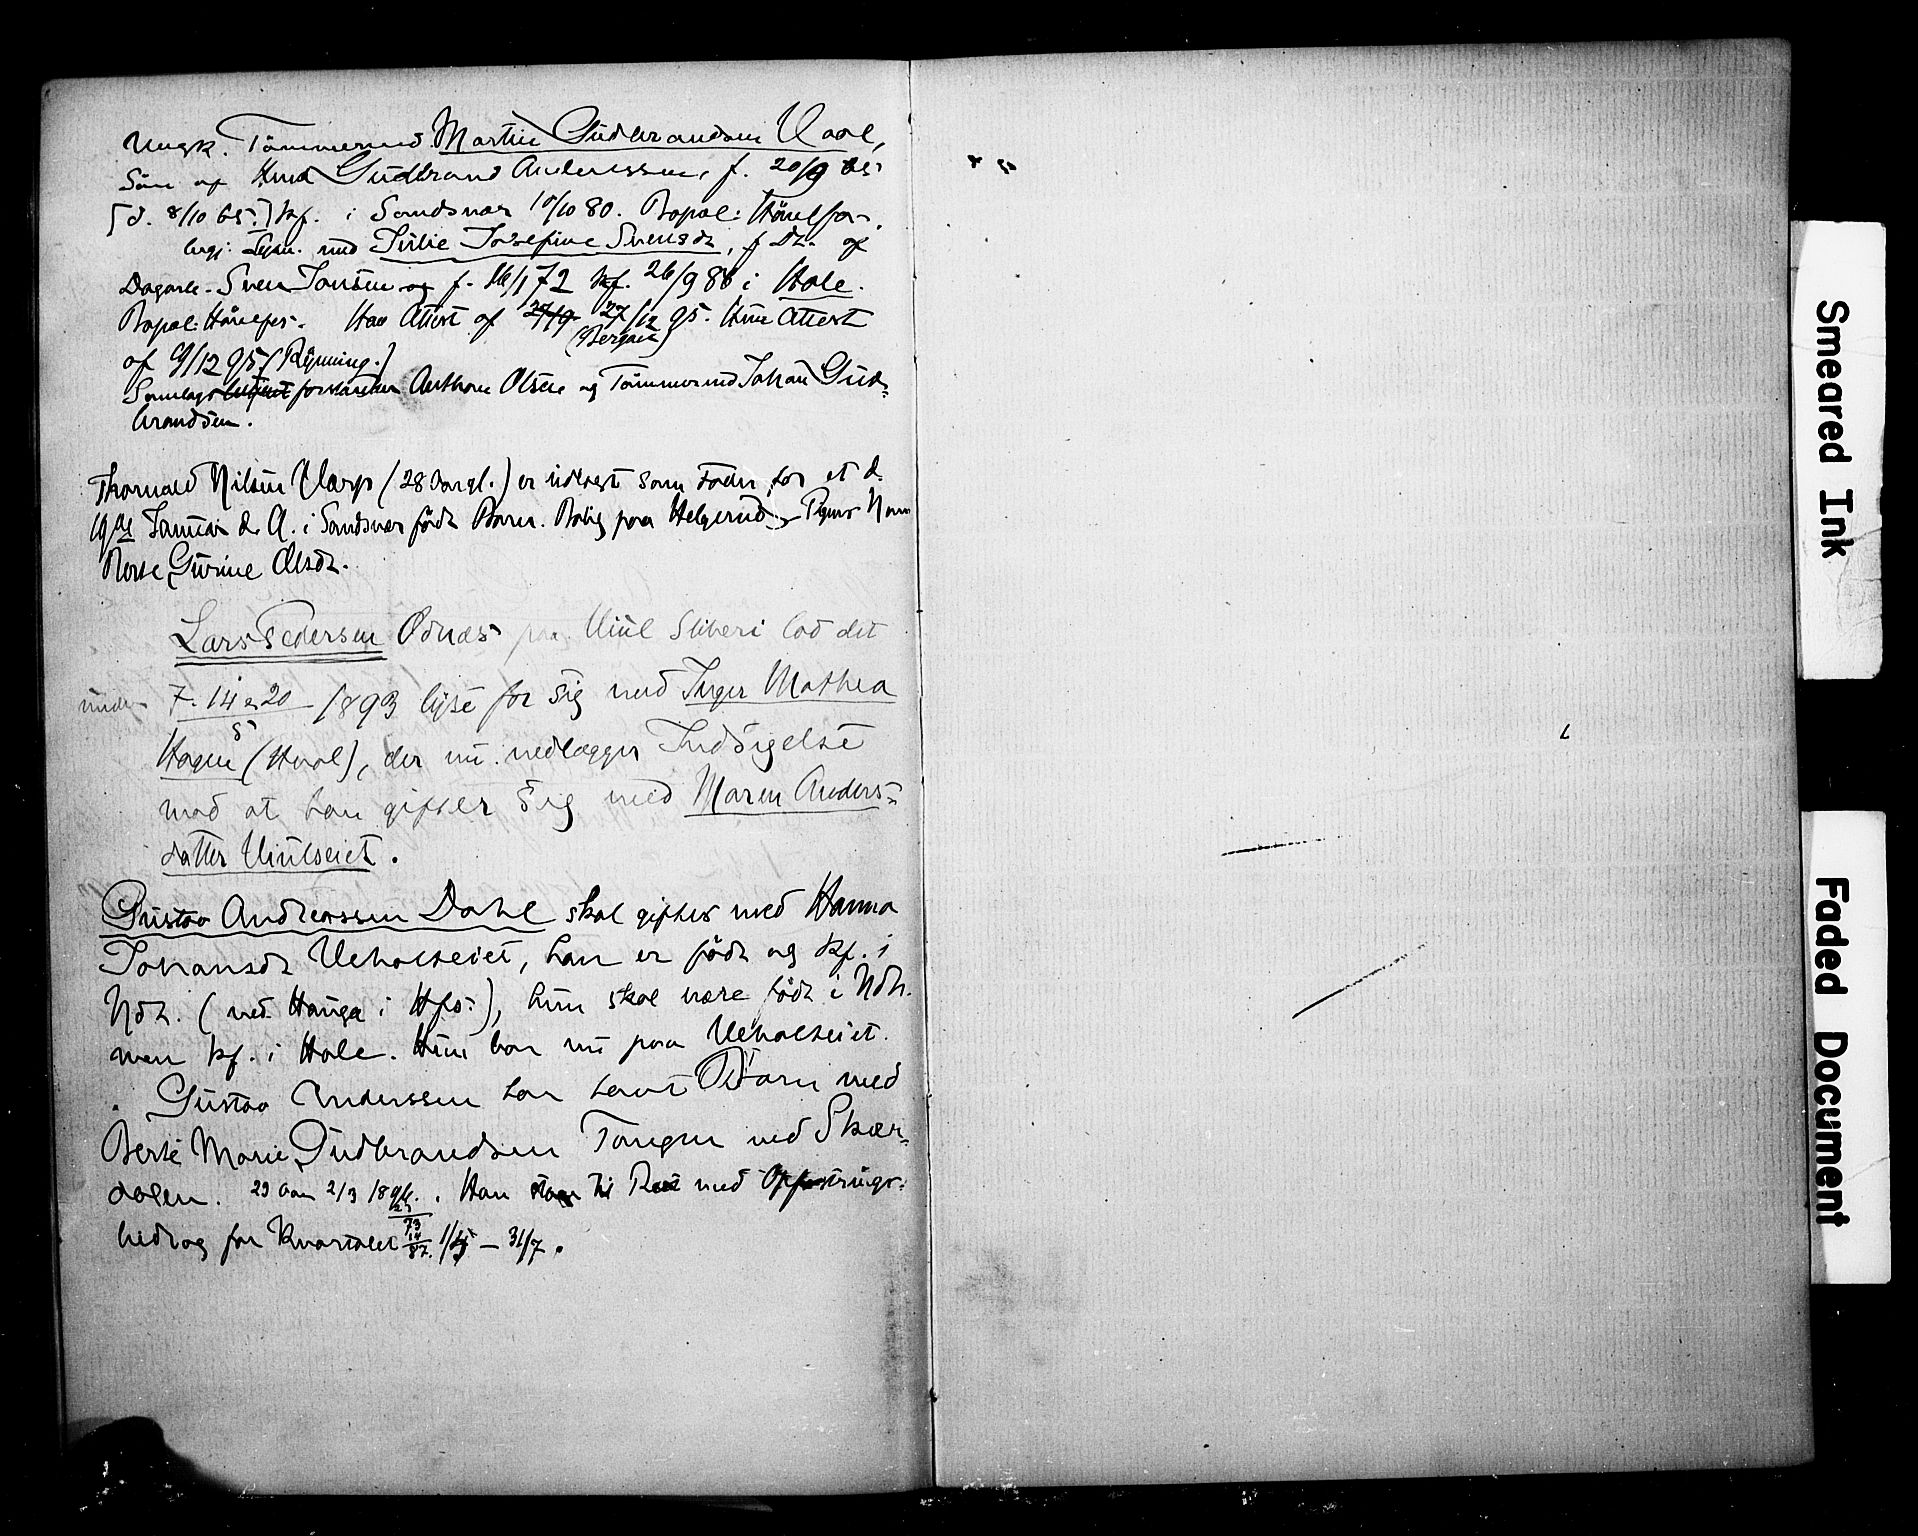 Ungk. Tömmermd. Martin Gudbrandsen Vaal,
Sön af Gudbrand Anderssen, f. 20/9 65
[d. 8/10 65.] kf. i Sandsvær 10/10 80. Bopæl: Hönefos.
med Julie Josefine Svensdr, f Dr. af
Dagarb. Sven Jonsen og f. 16/1 72 kf. 26/9 86 i Hole.
Bopæl: Hönefos. Han Attest af 27/9 27/12 95. Hun Attest
(Bergan)
af 9/12 95 (Rynning.)
forstander Anthon Olsen og Tömmermd Johan Gud-
brandsen.
Thorvald Nilsen Varp (28 Aar gl.) er udlagt som Fader for et d.
19de Januar d. A. i Sandsvær födt Barn. Bolig paa Helgerud. Pigens Navn
Berte Gurine Olsdr.
Lars Pedersen Odnæs paa Viul Sliberi lod det
under 7. 14 & 20/5 1893 lyse for sig med Inger Mathea
Hagen (Hval), der nu nedlægger Indsigelse
mod at han gifter sig med Maren Anders-
datter Viulseiet.
Gustav Andreassen Dahl skal giftes med Hanna
Johansdr Veholtseiet, han er födt og kf. i
Ndh. (ved Hauga i Hfos.), hun skal være födt i Ndh.
men kf. i Hole. Hun bor nu paa Veholtseiet.
Gustav Anderssen har havt Barn med
Berte Marie Gudbrandsen Tangen ved Skjær-
dalen. 23 Aar 2/3 1896. Han til med Opfostrings-
bidrag for Kvartalet 1/5 – 31/7.
23
73
14
87.
Smeared Ink
Faded Document